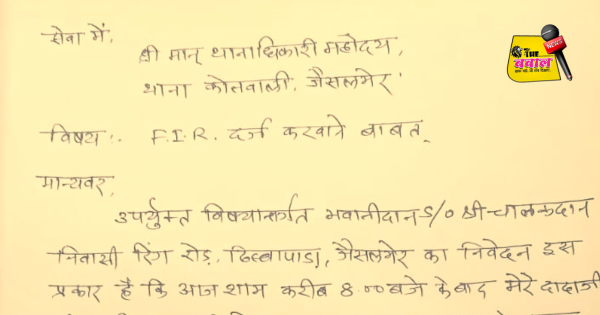 सेवा में,
श्री मान् थानाधिकारी महोदय,
थाना कोतवाली, जैसलमेर
विषय :- F.I.R. दर्ज करवाने बाबत्
मान्यवर,
उपर्युक्त विषयान्तर्गत भवानीदान S/o श्री चालकदान
निवासी रिंग रोड़, ढिब्बापाड़ा, जैसलमेर का निवेदन इस
प्रकार है कि आज शाम करीब 8:00 बजे के बाद मेरे दादाजी
THE
NEWS
बवाल